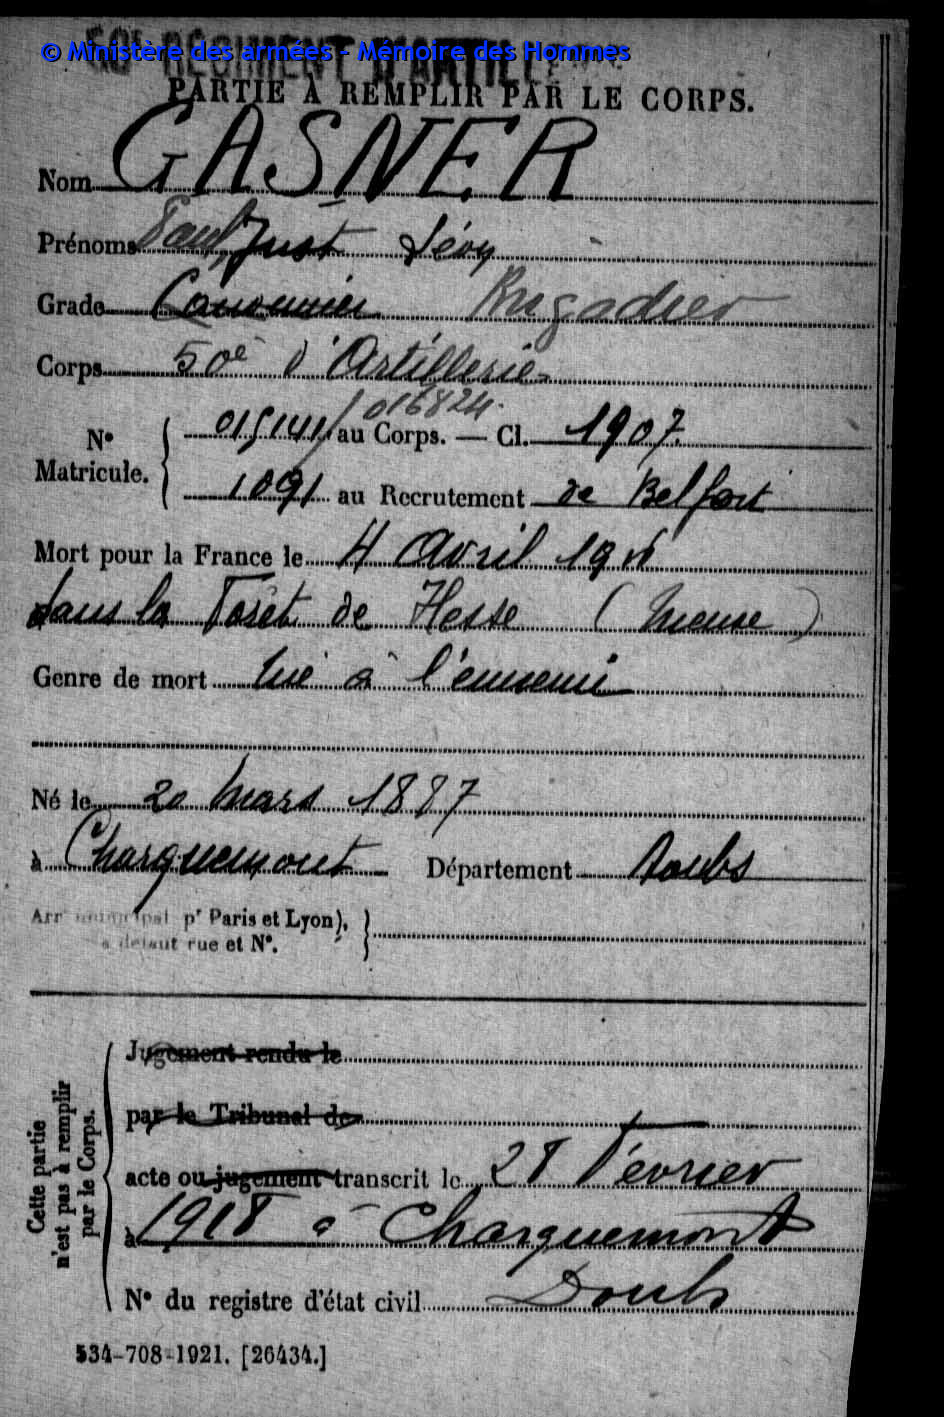 50e REGIMENT D'ARTILLERIE
© Ministère des armées - Mémoire des Hommes
PARTIE À REMPLIR PAR LE CORPS.
Nom GASNER
Prénoms Paul, Just Lévy
Grade Canonnier Brigadier
Corps 50e d'Artillerie
016824
N° Matricule. 015141 au Corps. — Cl. 1907.
1091 au Recrutement de Belfort
Mort pour la France le 4 Avril 19
dans la Forêt de Hesse (Meuse)
Genre de mort tué à l'ennemi
Né le 20 Mars 1887
à Charquemont Département Doubs
Arr municipal pr Paris et Lyon),
à défaut rue et N°.
Cette partie n'est pas à remplir par le Corps.
Jugement rendu le
par le Tribunal de
acte ou jugement transcrit le 28 Février
à 1918 à Charquemont
N° du registre d'état civil Doubs
534-708-1921. [26434.]